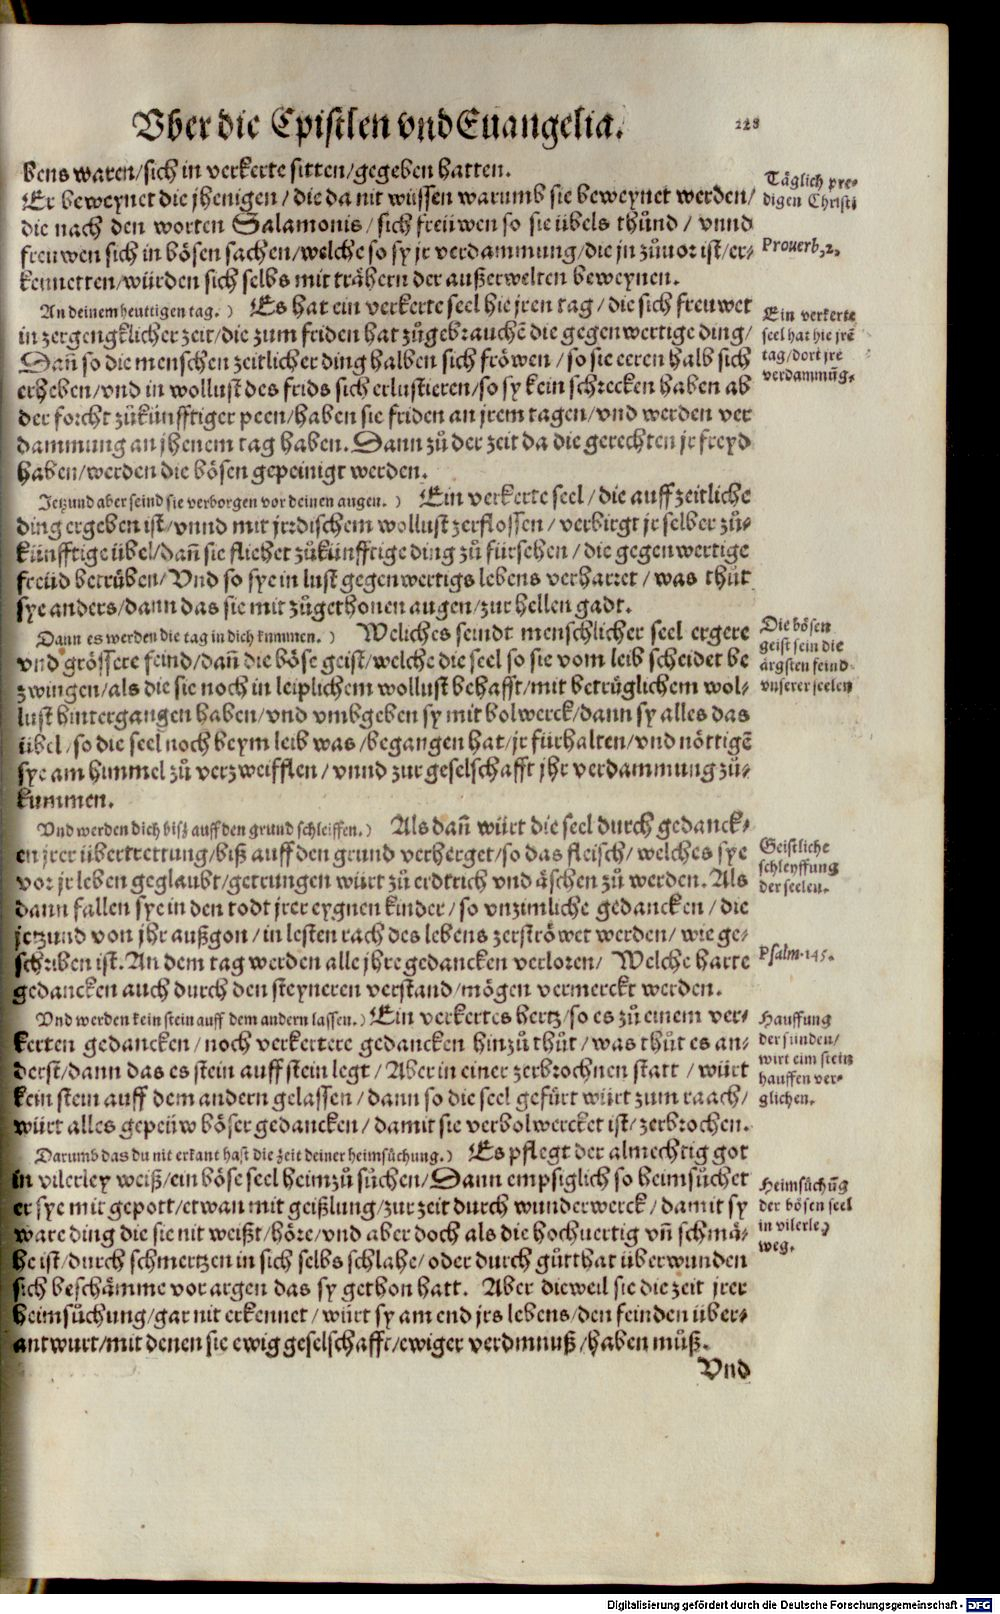 Vber die Epistlen vnd Euangelia.
228
bens waren/sich in verkerte sitten/gegeben hatten.
Er beweynet die jhenigen/ die da nit wüssen warumb sie beweynet werden/
die nach den worten Salamonis/ sich freüwen so sie übels thůnd/ vnnd
freuwen sich in bösen sachen/welche so sy jr verdammung/die jn zůuor ist/er-
kennetten/würden sich selbs mit trähern der außerwelten beweynen.
An deinem heuttigen tag.) Es hat ein verkerte seel hie jren tag/ die sich freuwet
in zergengklicher zeit/die zum friden hat zůgebrauchẽ die gegenwertige ding/
Dañ so die menschen zeitlicher ding halben sich fröwen/ so sie eeren halb sich
erheben/vnd in wollust des frids sich erlustieren/so sy kein schrecken haben ab
der forcht zůkünfftiger peen/haben sie friden an jrem tagen/vnd werden ver
dammung an jhenem tag haben. Dann zů der zeit da die gerechten jr freyd
haben/werden die bösen gepeinigt werden.
Jetzund aber seind sie verborgen vor deinen augen.) Ein verkerte seel/ die auff zeitliche
ding ergeben ist/vnnd mit jrrdischem wollust zerflossen/ verbirgt jr selber zů-
künfftige übel/dañ sie fliehet zůkünfftige ding zů fürsehen/ die gegenwertige
freüd betrüben/Vnd so sye in lust gegenwertigs lebens verharret/ was thůt
sye anders/dann das sie mit zůgethonen augen/zur hellen gadt.
Dann es werden die tag in dich kummen.) Weliches seindt menschlicher seel ergere
vnd grössere feind/dañ die böse geist/welche die seel so sie vom leib scheidet be
zwingen/als die sie noch in leiplichem wollust behafft/mit betrüglichem wol-
lust hintergangen haben/vnd vmbgeben sy mit bolwerck/dann sy alles das
übel/so die seel noch beym leib was/begangen hat/jr fürhalten/vnd nöttigẽ
sye am himmel zů verzweifflen/ vnnd zur geselschafft jhr verdammung zů-
kummen.
Vnd werden dich biß auff den grund schleiffen.) Als dañ würt die seel durch gedanck-
en jrer übertrettung/biß auff den grund verherget/so das fleisch/ welches sye
vor jr leben geglaubt/getrungen würt zů erdtrich vnd äschen zů werden. Als
dann fallen sye in den todt jrer eygnen kinder/ so vnzimliche gedancken/ die
jetzund von jhr außgon/in lesten rach des lebens zerströwet werden/ wie ge-
schriben ist. An dem tag werden alle jhre gedancken verloren/ Welche harte
gedancken auch durch den steyneren verstand/mögen vermerckt werden.
Vnd werden kein stein auff dem andern lassen.) Ein verkertes hertz/so es zů einem ver-
kerten gedancken/noch verkertere gedancken hinzů thůt/ was thůt es an-
derst/dann das es stein auff stein legt/ Aber in einer zerbrochnen statt/ würt
kein stein auff dem andern gelassen/ dann so die seel gefürt würt zum raach/
würt alles gepeüw böser gedancken/ damit sie verbolwercket ist/ zerbrochen.
Darumb das du nit erkant hast die zeit deiner heimsůchung.) Es pflegt der almechtig got
in vilerley weiß/ein böse seel heimzů sůchen/ Dann empsiglich so heimsůchet
er sye mit gepott/etwan mit geißlung/zur zeit durch wunderwerck/ damit sy
ware ding die sie nit weißt/höre/vnd aber doch als die hochuertig vñ schmä-
he ist/durch schmertzen in sich selbs schlahe/ oder durch gůtthat überwunden
sich beschämme vor argen das sy gethon hatt. Aber dieweil sie die zeit jrer
heimsůchung/gar nit erkennet/ würt sy am end jrs lebens/den feinden über-
antwurt/mit denen sie ewig geselschafft/ewiger verdmnuß/haben můß.
Vnd
Täglich pre-
digen Christi
Prouerb.2.
Ein verkerte
seel hat hie jrẽ
tag/dort jre
verdammũg.
Die bösen
geist sein die
ärgsten feind
vnserer seelen
Geistliche
schleyffung
der seelen.
Psalm.145.
Hauffung
der sünden/
wirt eim stein
hauffen ver-
glichen.
Heimsůchũg
der bösen seel
in vilerley
weg.
Digitalisierung gefördert durch die Deutsche Forschungsgemeinschaft - DFG